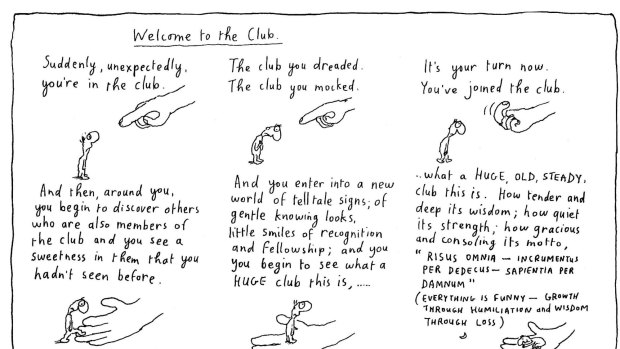 Welcome to the Club.
Suddenly, unexpectedly,
you're in the club.
The club you dreaded.
The club you mocked.
It's your turn now.
You've joined the club.
And then, around you,
you begin to discover others
who are also members of
the club and you see a
sweetness in them that you
hadn't seen before.
And you enter into a new
world of telltale signs; of
gentle knowing looks,
little smiles of recognition
and fellowship; and you
you begin to see what a
HUGE club this is, .....
..what a HUGE, OLD, STEADY,
club this is. How tender and
deep its wisdom; how quiet
its strength; how gracious
and consoling its motto,
"RISUS OMNIA — INCRUMENTUS
PER DEDECUS — SAPIENTIA PER
DAMNUM"
(EVERYTHING IS FUNNY — GROWTH
THROUGH HUMILIATION and WISDOM
THROUGH LOSS)